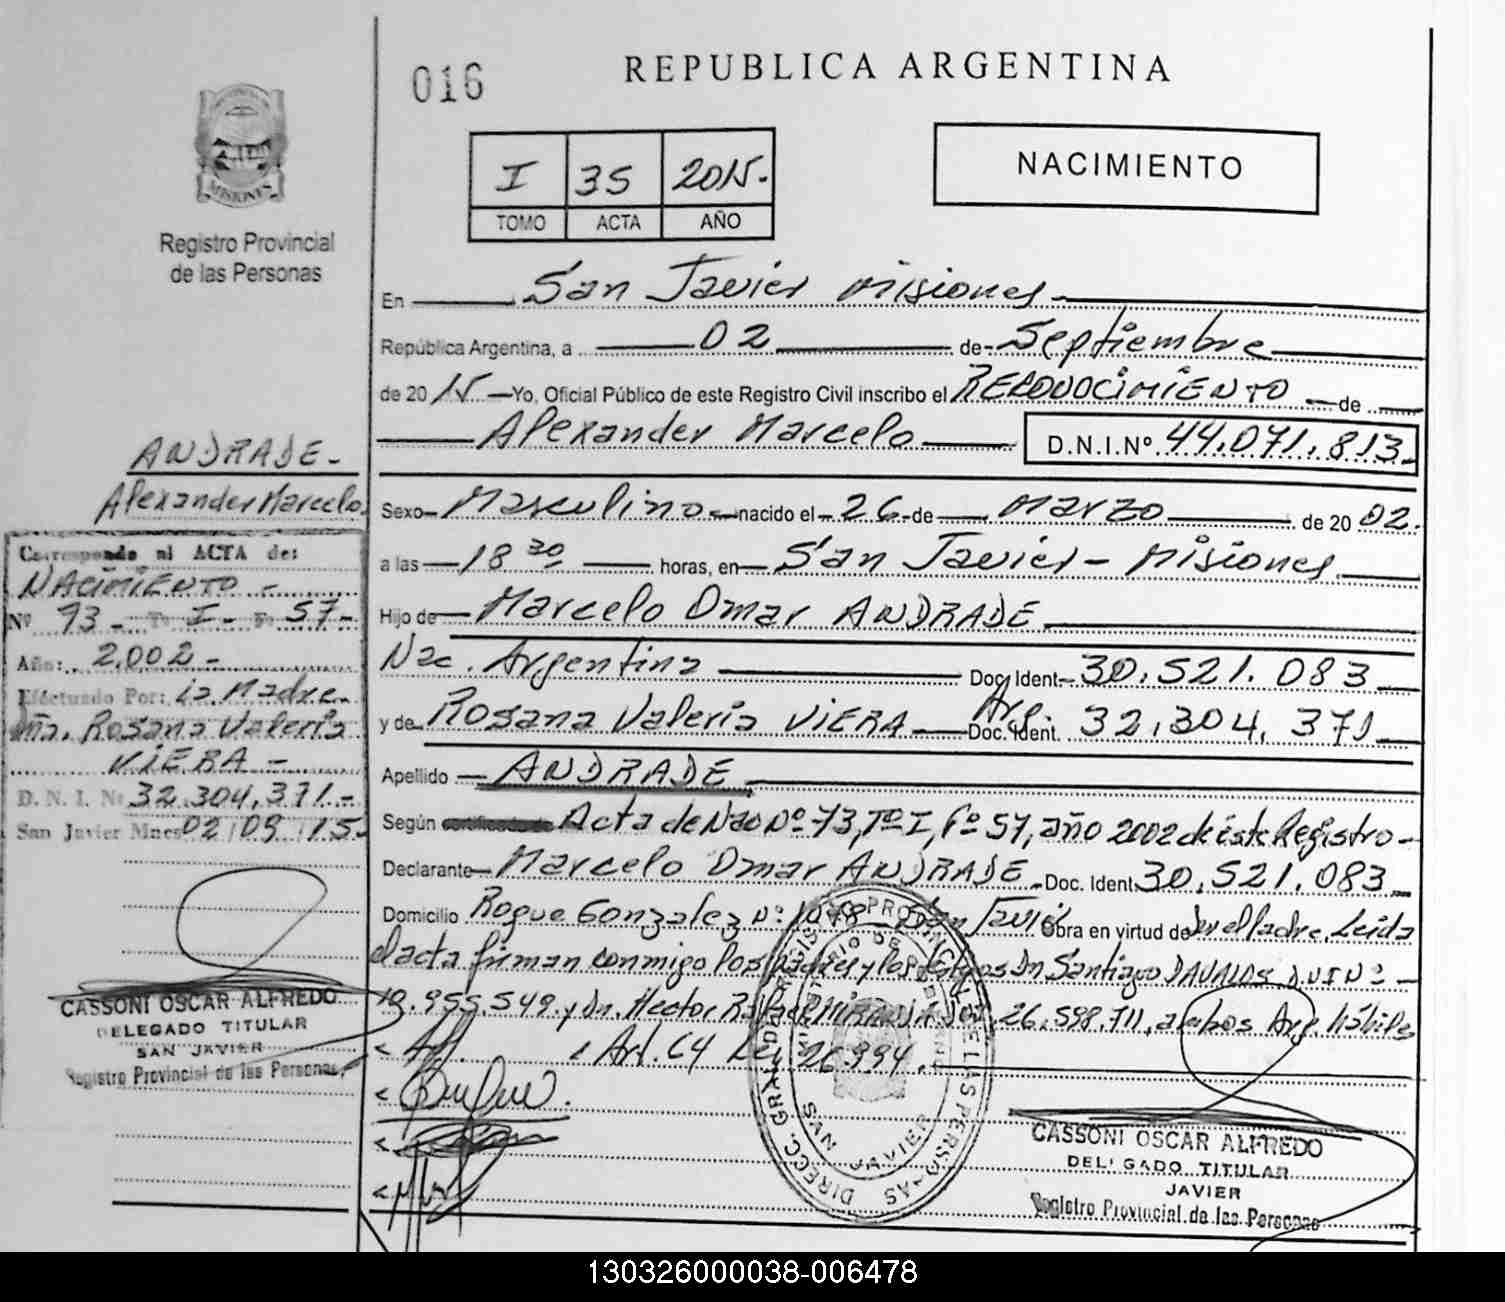 016
REPUBLICA ARGENTINA
MISIONES
Registro Provincial
de las Personas
I 35 2015.
TOMO ACTA AÑO
NACIMIENTO
En San Javier Misiones
República Argentina, a 02 de Septiembre
de 20 15 Yo, Oficial Público de este Registro Civil inscribo el RECONOCIMIENTO de
Alexander Marcelo D.N.I.Nº 44.071.813.
Sexo Masculino nacido el 26 de Marzo de 20 02.
a las 18 30 horas, en San Javier - Misiones
Hijo de Marcelo Omar ANDRADE
Nac. Argentina Doc. Ident. 30.521.083
Arg.
y de Rosana Valeria VIERA Doc. Ident. 32.304.371
Apellido ANDRADE
Según Acta de Nac Nº 73, Tº I, Fº 57, año 2002 de este Registro-
Declarante Marcelo Omar ANDRADE Doc. Ident. 30.521.083
Domicilio Roque Gonzalez Nº San Javier Obra en virtud de Leída
el acta firman conmigo los padres y los testigos Dn Santiago DAVALOS D.N.I Nº -
.955.549. y Dn. Hector 26.598.711, ambos Arg. hábiles
Art. 64 Ley 26994.
ANDRADE-
Alexander Marcelo
Corresponde al ACTA de:
NACIMIENTO -
Nº 73 - Tº I - Fº 57-
Año: 2.002 -
Efectuado Por: La Madre
Dña. Rosana Valeria
VIERA -
D. N. I. Nº 32.304.371-
San Javier Mnes 02/09/15-
CASSONI OSCAR ALFREDO
DELEGADO TITULAR
SAN JAVIER
Registro Provincial de las Personas
SAN JAVIER
CASSONI OSCAR ALFREDO
DELEGADO TITULAR
JAVIER
Registro Provincial de las Personas
130326000038-006478